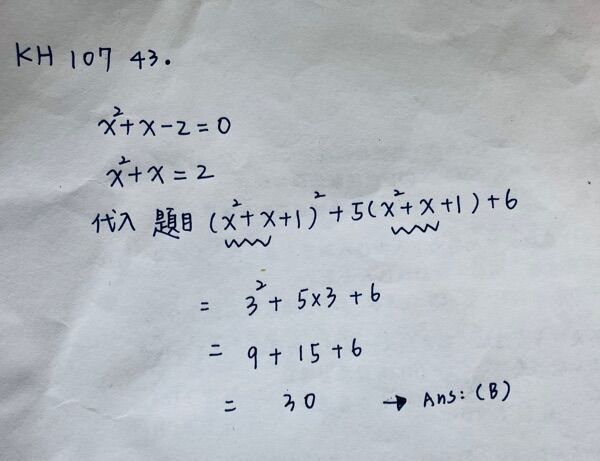 KH 107 43.
x²+x-2=0
x²+x=2
代入 題目 (x²+x+1)²+5(x²+x+1)+6
= 3²+5×3+6
= 9+15+6
= 30 → Ans:(B)